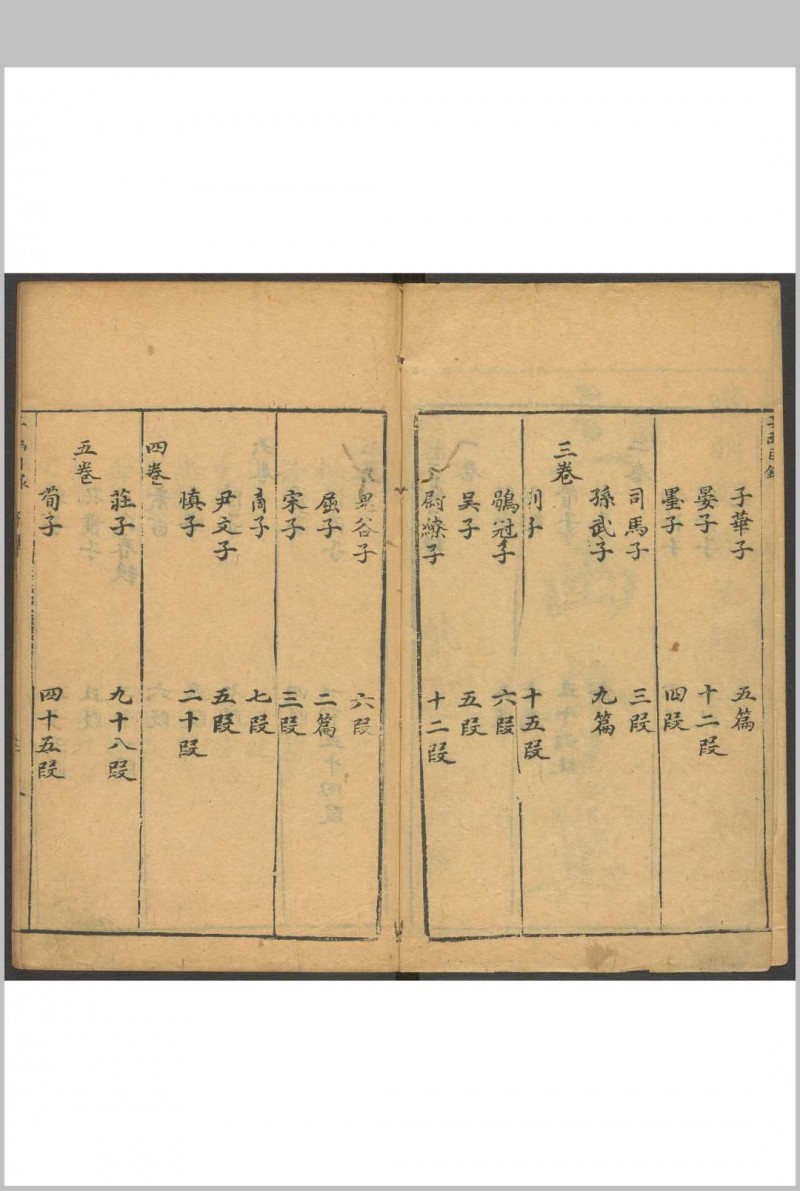 子華子 五篇
晏子 十二段
墨子 四段
司馬子 三段
孫武子 九篇
三卷
列子 十五段
鶡冠子 六段
吳子 五段
尉繚子 十二段
鬼谷子 六段
屈子 二篇
宋子 三段
商子 七段
尹文子 五段
慎子 二十段
四卷
莊子 九十八段
五卷
荀子 四十五段